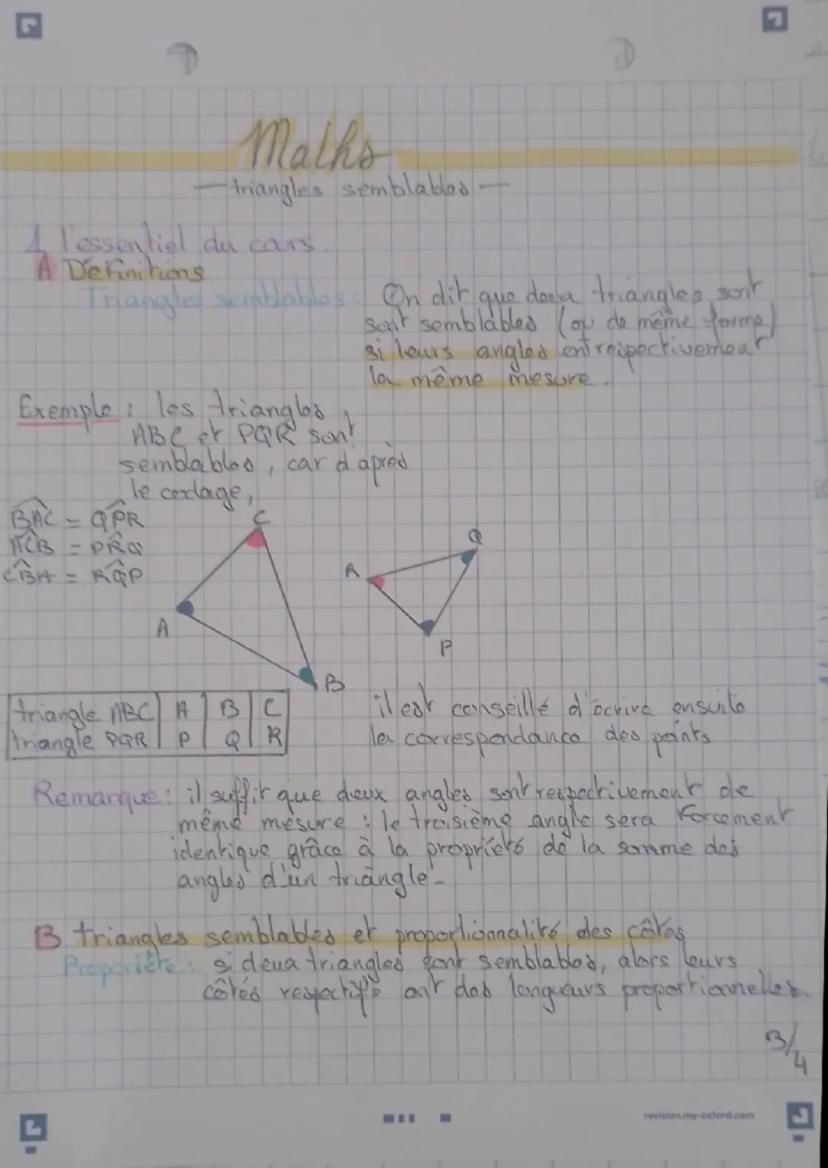 Maths
— triangles semblables —
1 l'essentiel du cars.
A Définitions
Triangles semblables : On dit que deux triangles sont
sont semblables (ou de même forme)
si leurs angles ont respectivement
la même mesure.
Exemple : les triangles
ABC et PQR sont
semblables, car d'après
le codage,
BAC = QPR
ACB = PRQ
CBA = RQP
C
A
B
R
Q
P
triangle ABC | A | B | C
triangle PQR | P | Q | R
il est conseillé d'écrire ensuite
la correspondance des points
Remarque : il suffit que deux angles sont respectivement de
même mesure : le troisième angle sera forcement
identique grâce à la propriété de la somme des
angles d'un triangle.
B triangles semblables et proportionnalité des côtés
Propriété : si deux triangles sont semblables, alors leurs
côtés respectifs ont des longueurs proportionnelles.
3/4
revision.my-oxford.com